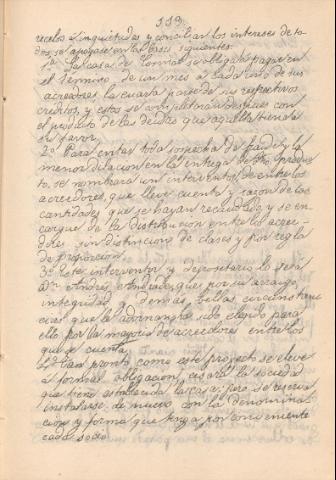 113.
recelos é inquietudes y concilian los intereses de to-
dos, se apoyase en las bases siguientes:
1ª La casa de se obligará á pagar en
el término de un mes á cada uno de sus
acreedores, la cuarta parte de sus respectivos
créditos, y estos se completarán después con
el producto de las deudas que aquella tiene á
su favor.
2ª Para evitar toda sospecha de fraude y la
menor dilación en la entrega de dho produc-
to, se nombrará un interventor de entre los
acreedores, que lleve cuenta y razón de las
cantidades que se hayan recaudado y se en-
cargue de la distribución entre los acree-
dores, sin distinción de clases y por regla
de proporción.
3ª Este interventor y depositario lo será
Dn. Andrés que por su arraigo,
integridad y demás bellas circunstan-
cias que le adornan ha sido elegido para
ello por la mayoría de acreedores entre los
que se cuenta.
4ª Tan pronto como este proyecto se eleve
á formal obligación, cesará la sociedad
que tiene establecida la casa; pero se reserva
instalarse de nuevo con la denomina-
ción y forma que tenga por conveniente
cada socio.